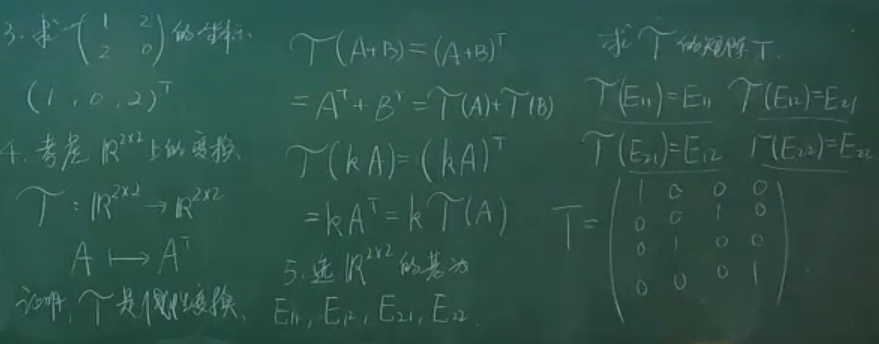 3. 求 \begin{pmatrix} 1 & 2 \\ 2 & 0 \end{pmatrix} 的坐标.
(1, 0, 2)^T
4. 考虑 ℝ^{2×2} 上的变换
𝒯 : ℝ^{2×2} → ℝ^{2×2}
A ↦ A^T
证明, 𝒯 是线性变换.
𝒯(A+B) = (A+B)^T
= A^T + B^T = 𝒯(A) + 𝒯(B)
𝒯(kA) = (kA)^T
= kA^T = k𝒯(A)
5. 选 ℝ^{2×2} 的基为
E_{11}, E_{12}, E_{21}, E_{22}.
求 𝒯 的矩阵 T.
𝒯(E_{11}) = E_{11} 𝒯(E_{12}) = E_{21}
𝒯(E_{21}) = E_{12} 𝒯(E_{22}) = E_{22}
T = \begin{pmatrix} 1 & 0 & 0 & 0 \\ 0 & 0 & 1 & 0 \\ 0 & 1 & 0 & 0 \\ 0 & 0 & 0 & 1 \end{pmatrix}